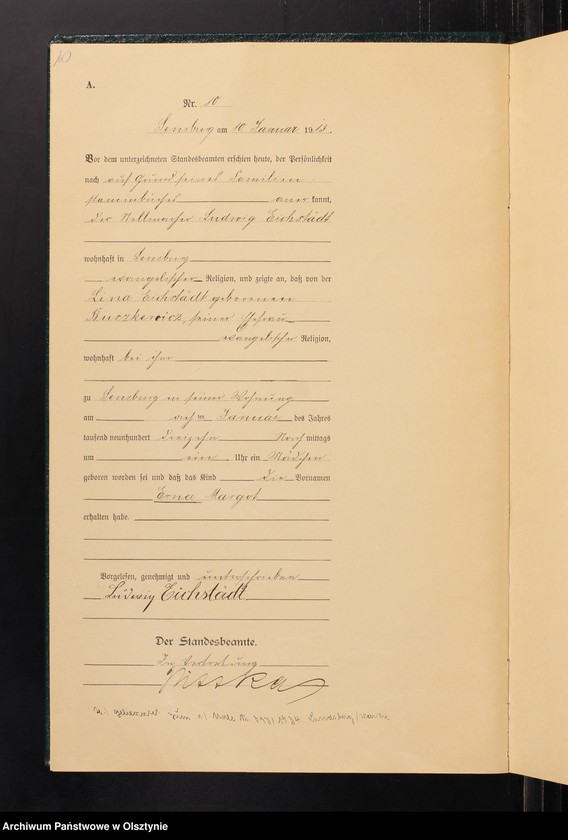 10
A.
Nr. 10
Sensburg am 10 Januar 1913.
Vor dem unterzeichneten Standesbeamten erschien heute, der Persönlichkeit
nach auf Grund seines Familien
stammbuches anerkannt,
der Stellmacher Ludwig Eichstädt
wohnhaft in Sensburg
evangelischer Religion, und zeigte an, daß von der
Lina Eichstädt geborenen
Buczkewicz, seiner Ehefrau
evangelischer Religion,
wohnhaft bei ihm
zu Sensburg in seiner Wohnung
am Januar des Jahres
tausend neunhundert dreizehn Nachmittags
um ein Uhr ein Mädchen
geboren worden sei und daß das Kind die Vornamen
Erna Margot
erhalten habe.
Vorgelesen, genehmigt und unterschrieben
Ludwig Eichstädt
Der Standesbeamte.
In Vertretung
1934 Landsberg/Warthe
Archiwum Państwowe w Olsztynie